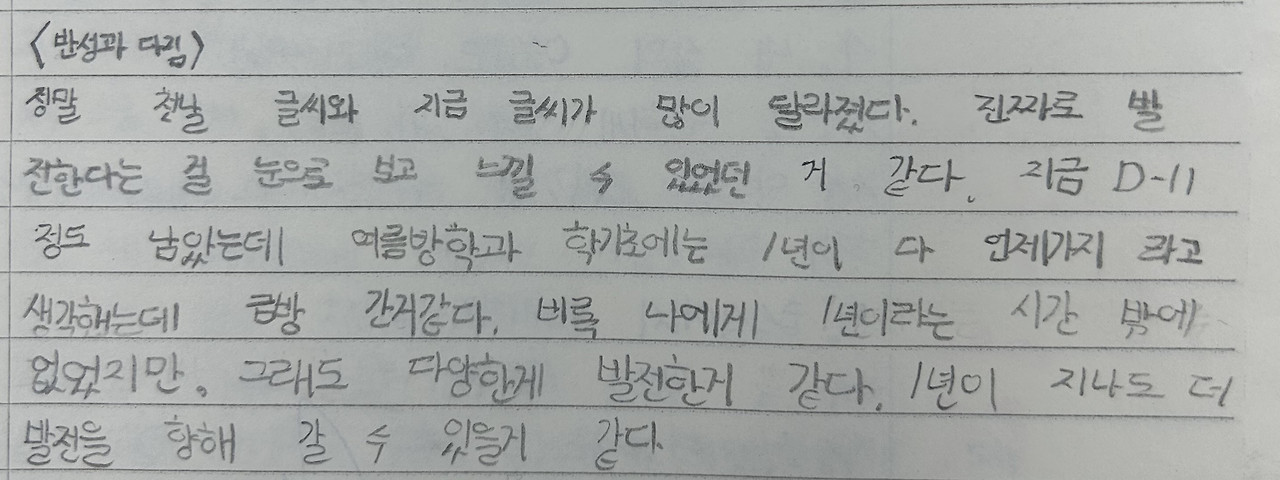 <반성과 다짐>
정말 첫날 글씨와 지금 글씨가 많이 달라졌다. 진짜로 발
전한다는 걸 눈으로 보고 느낄 수 있었던 거 같다. 지금 D-11
정도 남았는데 여름방학과 학기초에는 1년이 다 언제가지 라고
생각해는데 금방 간거같다. 비록 나에게 1년이라는 시간 밖에
없었지만, 그래도 다양한게 발전한거 같다. 1년이 지나도 더
발전을 향해 갈 수 있을거 같다.